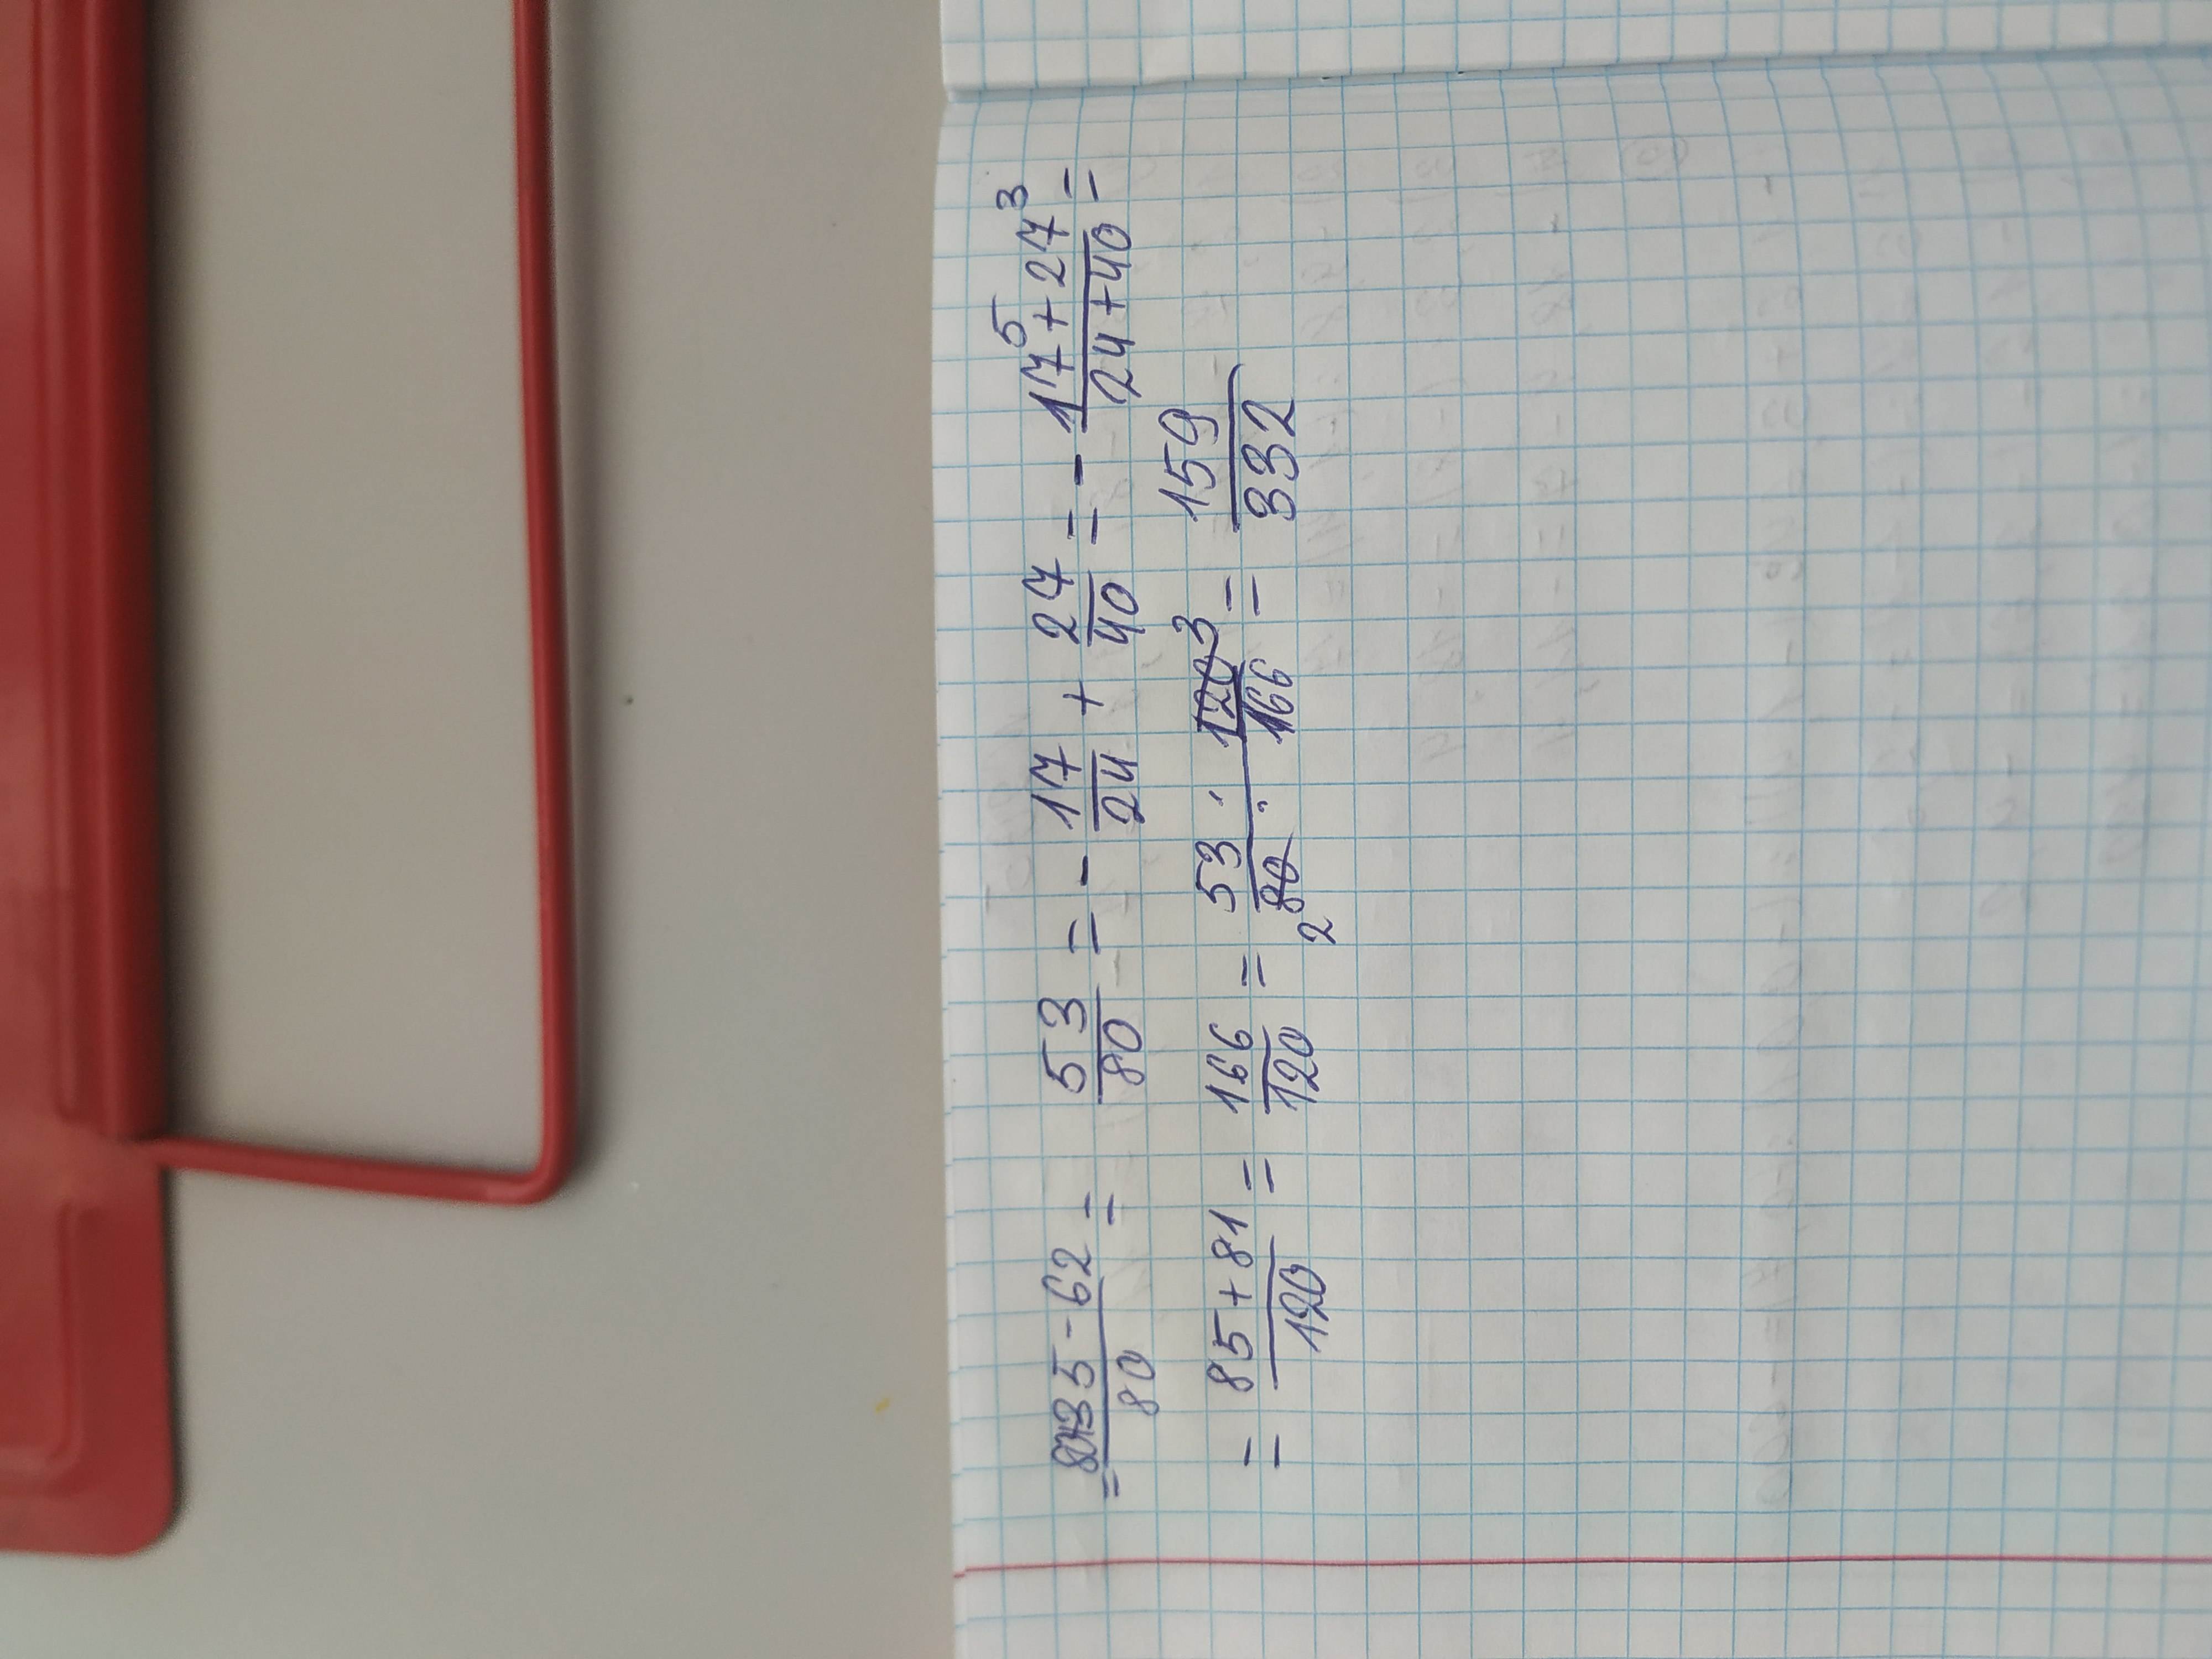 = 80+35-62/80 = 53/80 = - 17/24 + 27/40 = - 17⁵+27³/24+40 =
= 85+81/120 = 166/120 = 53 · 120 3/2 80 · 166 = 159/332